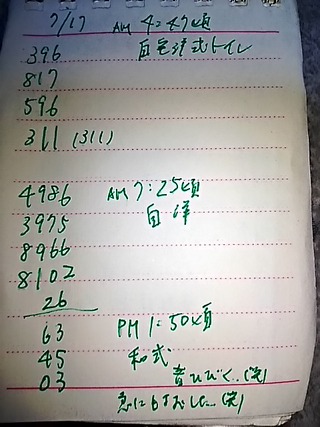 7/17 AM 4:47頃
396 自宅洋式トイレ
817
596
311 (311)
4986 AM 7:25頃
3975 自洋
8966
8102
26
63 PM 1:50頃
45 和式
03 音ひびく.(笑)
急にもよおした..(笑)